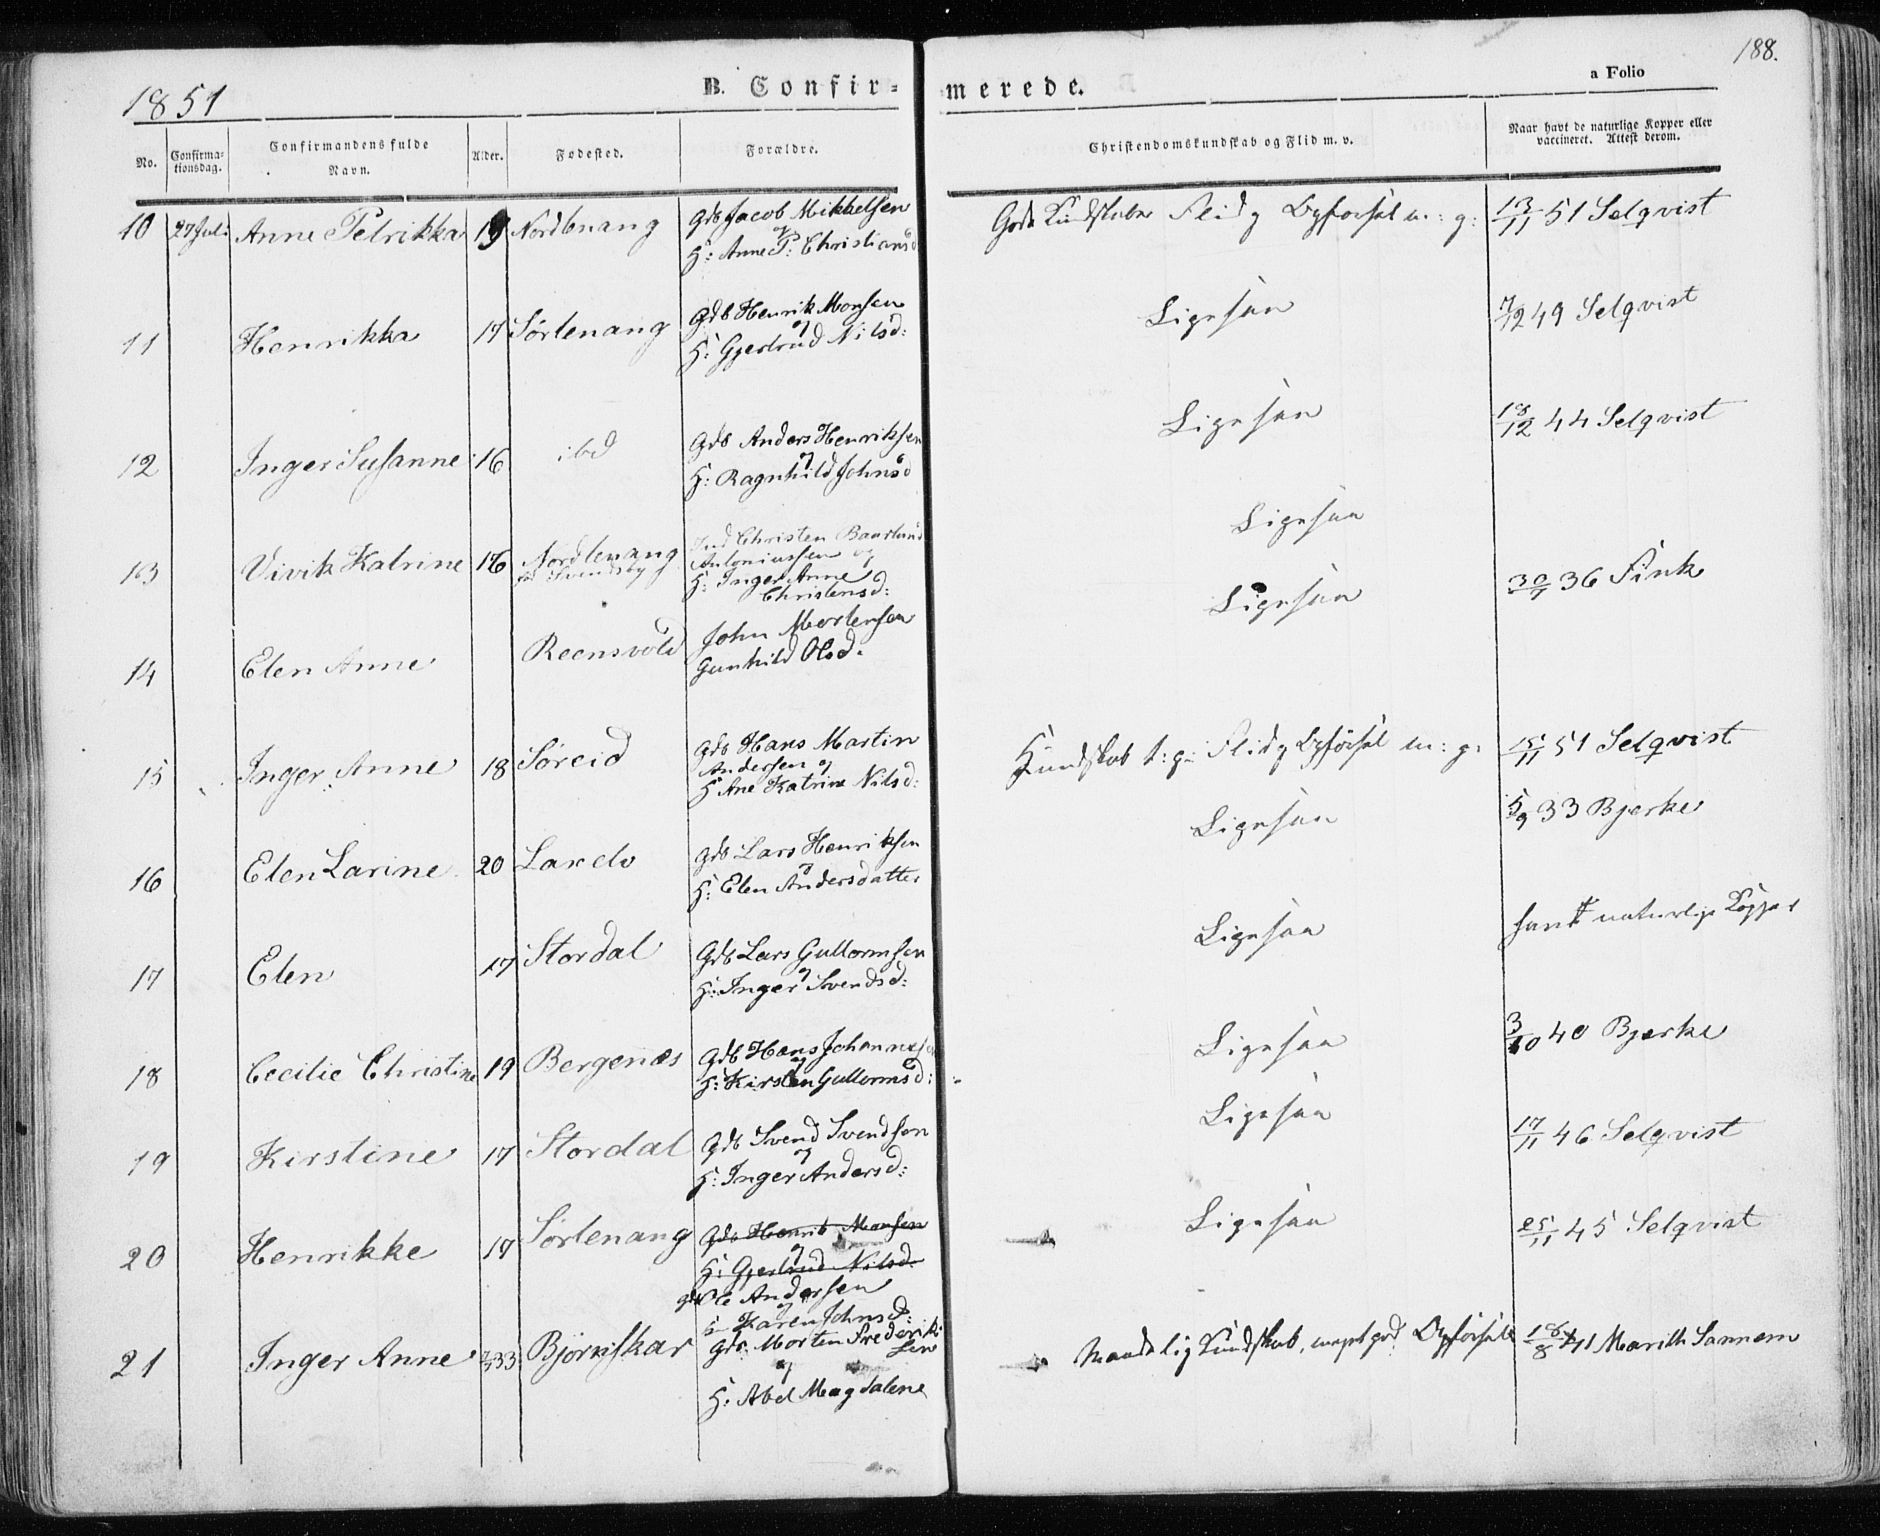 188.
1851
B. Confir-
merede.
a Folio
No.
Confirma-
tionsdag.
Confirmandens fulde
Navn.
Alder.
Fødested.
Forældre.
Christendomskundskab og Flid m. v.
Naar havt de naturlige Kopper eller
vaccineret. Attest derom.
10 27 Juli Anne Petrikka 19 Nordlenang Gdb Jacob Mikkelsen
og
H: Anne P: Christiansd
Gode Kundskaber Flid og Opførsel m: g: 13/11 51 Selqvist
11 Henrikka 17 Sørlenang Gdb Henrik Monsen
og
H: Gjertrud Nilsd:
Ligesaa 7/12 49 Selqvist
12 Inger Susanne 16 ibd Gdb Anders Henriksen
og
H: Ragnhild Johnsd
Ligesaa 18/12 44 Selqvist
13 Vivik Katrine 16 Nordlenang
Svendsby
Ind Christen Baarlund
Antoniussen og
H: Inger Anne
Christensd:
Ligesaa
14 Elen Anne Reensvold John Mortensen
Gunhild Olsd:
Ligesaa 30/7 36 Fink
15 Inger Anne 18 Søreid Gdb Hans Martin
Andersen og
H Ane Katrine Nilsd:
Kundskab t: g: Flid og Opførsel m: g: 15/11 51 Selqvist
16 Elen Larine 20 Lanelv Gdb Lars Henriksen
og
H: Elen Andersdatter
Ligesaa 5/9 33 Bjerke
17 Elen 17 Stordal Gdb Lars Gullormsen
og
H: Inger Svendsd:
Ligesaa havt naturlige Kopper
18 Cecilie Christine 19 Bergenæs Gdb Hans Johannesen
og
H: Kirsten Gullormsd:
Ligesaa 3/10 40 Bjerke
19 Kirstine 17 Stordal Gdb Svend Svendsen
og
H: Inger Andersd:
Ligesaa 17/11 46 Selqvist
20 Henrikke 17 Sørlenang Gdb Henrik Monsen
og
H: Gjertrud Nilsd:
Gdb Ole Andersen
og
H Karen Johnsd:
Ligesaa 25/11 45 Selqvist
21 Inger Anne 33 Bjørnskar Gdb: Morten Frederik-
sen
og
H: Abel Magdalene
Maadelig Kundskab, meget god Opførsel 18/8 41 Marith Sannem